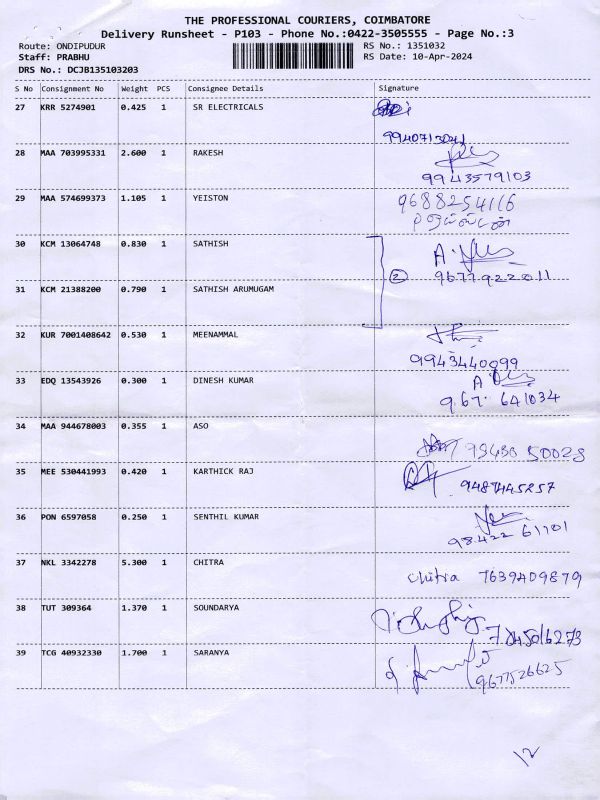 THE PROFESSIONAL COURIERS, COIMBATORE
Delivery Runsheet - P103 - Phone No.:0422-3505555 - Page No.:3
Route: ONDIPUDUR RS No.: 1351032
Staff: PRABHU RS Date: 10-Apr-2024
DRS No.: DCJB135103203
S No Consignment No Weight PCS Consignee Details Signature
27 KRR 5274901 0.425 1 SR ELECTRICALS
9940713041
28 MAA 703995331 2.600 1 RAKESH
9943579103
29 MAA 574699373 1.105 1 YEISTON 9688254116
30 KCM 13064748 0.830 1 SATHISH
② 9677922011
31 KCM 21388200 0.790 1 SATHISH ARUMUGAM
32 KUR 7001408642 0.530 1 MEENAMMAL
9943440099
33 EDQ 13543926 0.300 1 DINESH KUMAR
34 MAA 944678003 0.355 1 ASO
35 MEE 530441993 0.420 1 KARTHICK RAJ
9487445257
36 PON 6597058 0.250 1 SENTHIL KUMAR
98422 61101
37 NKL 3342278 5.300 1 CHITRA chitra 7639409879
38 TUT 309364 1.370 1 SOUNDARYA
39 TCG 40932330 1.700 1 SARANYA
9677526625
12